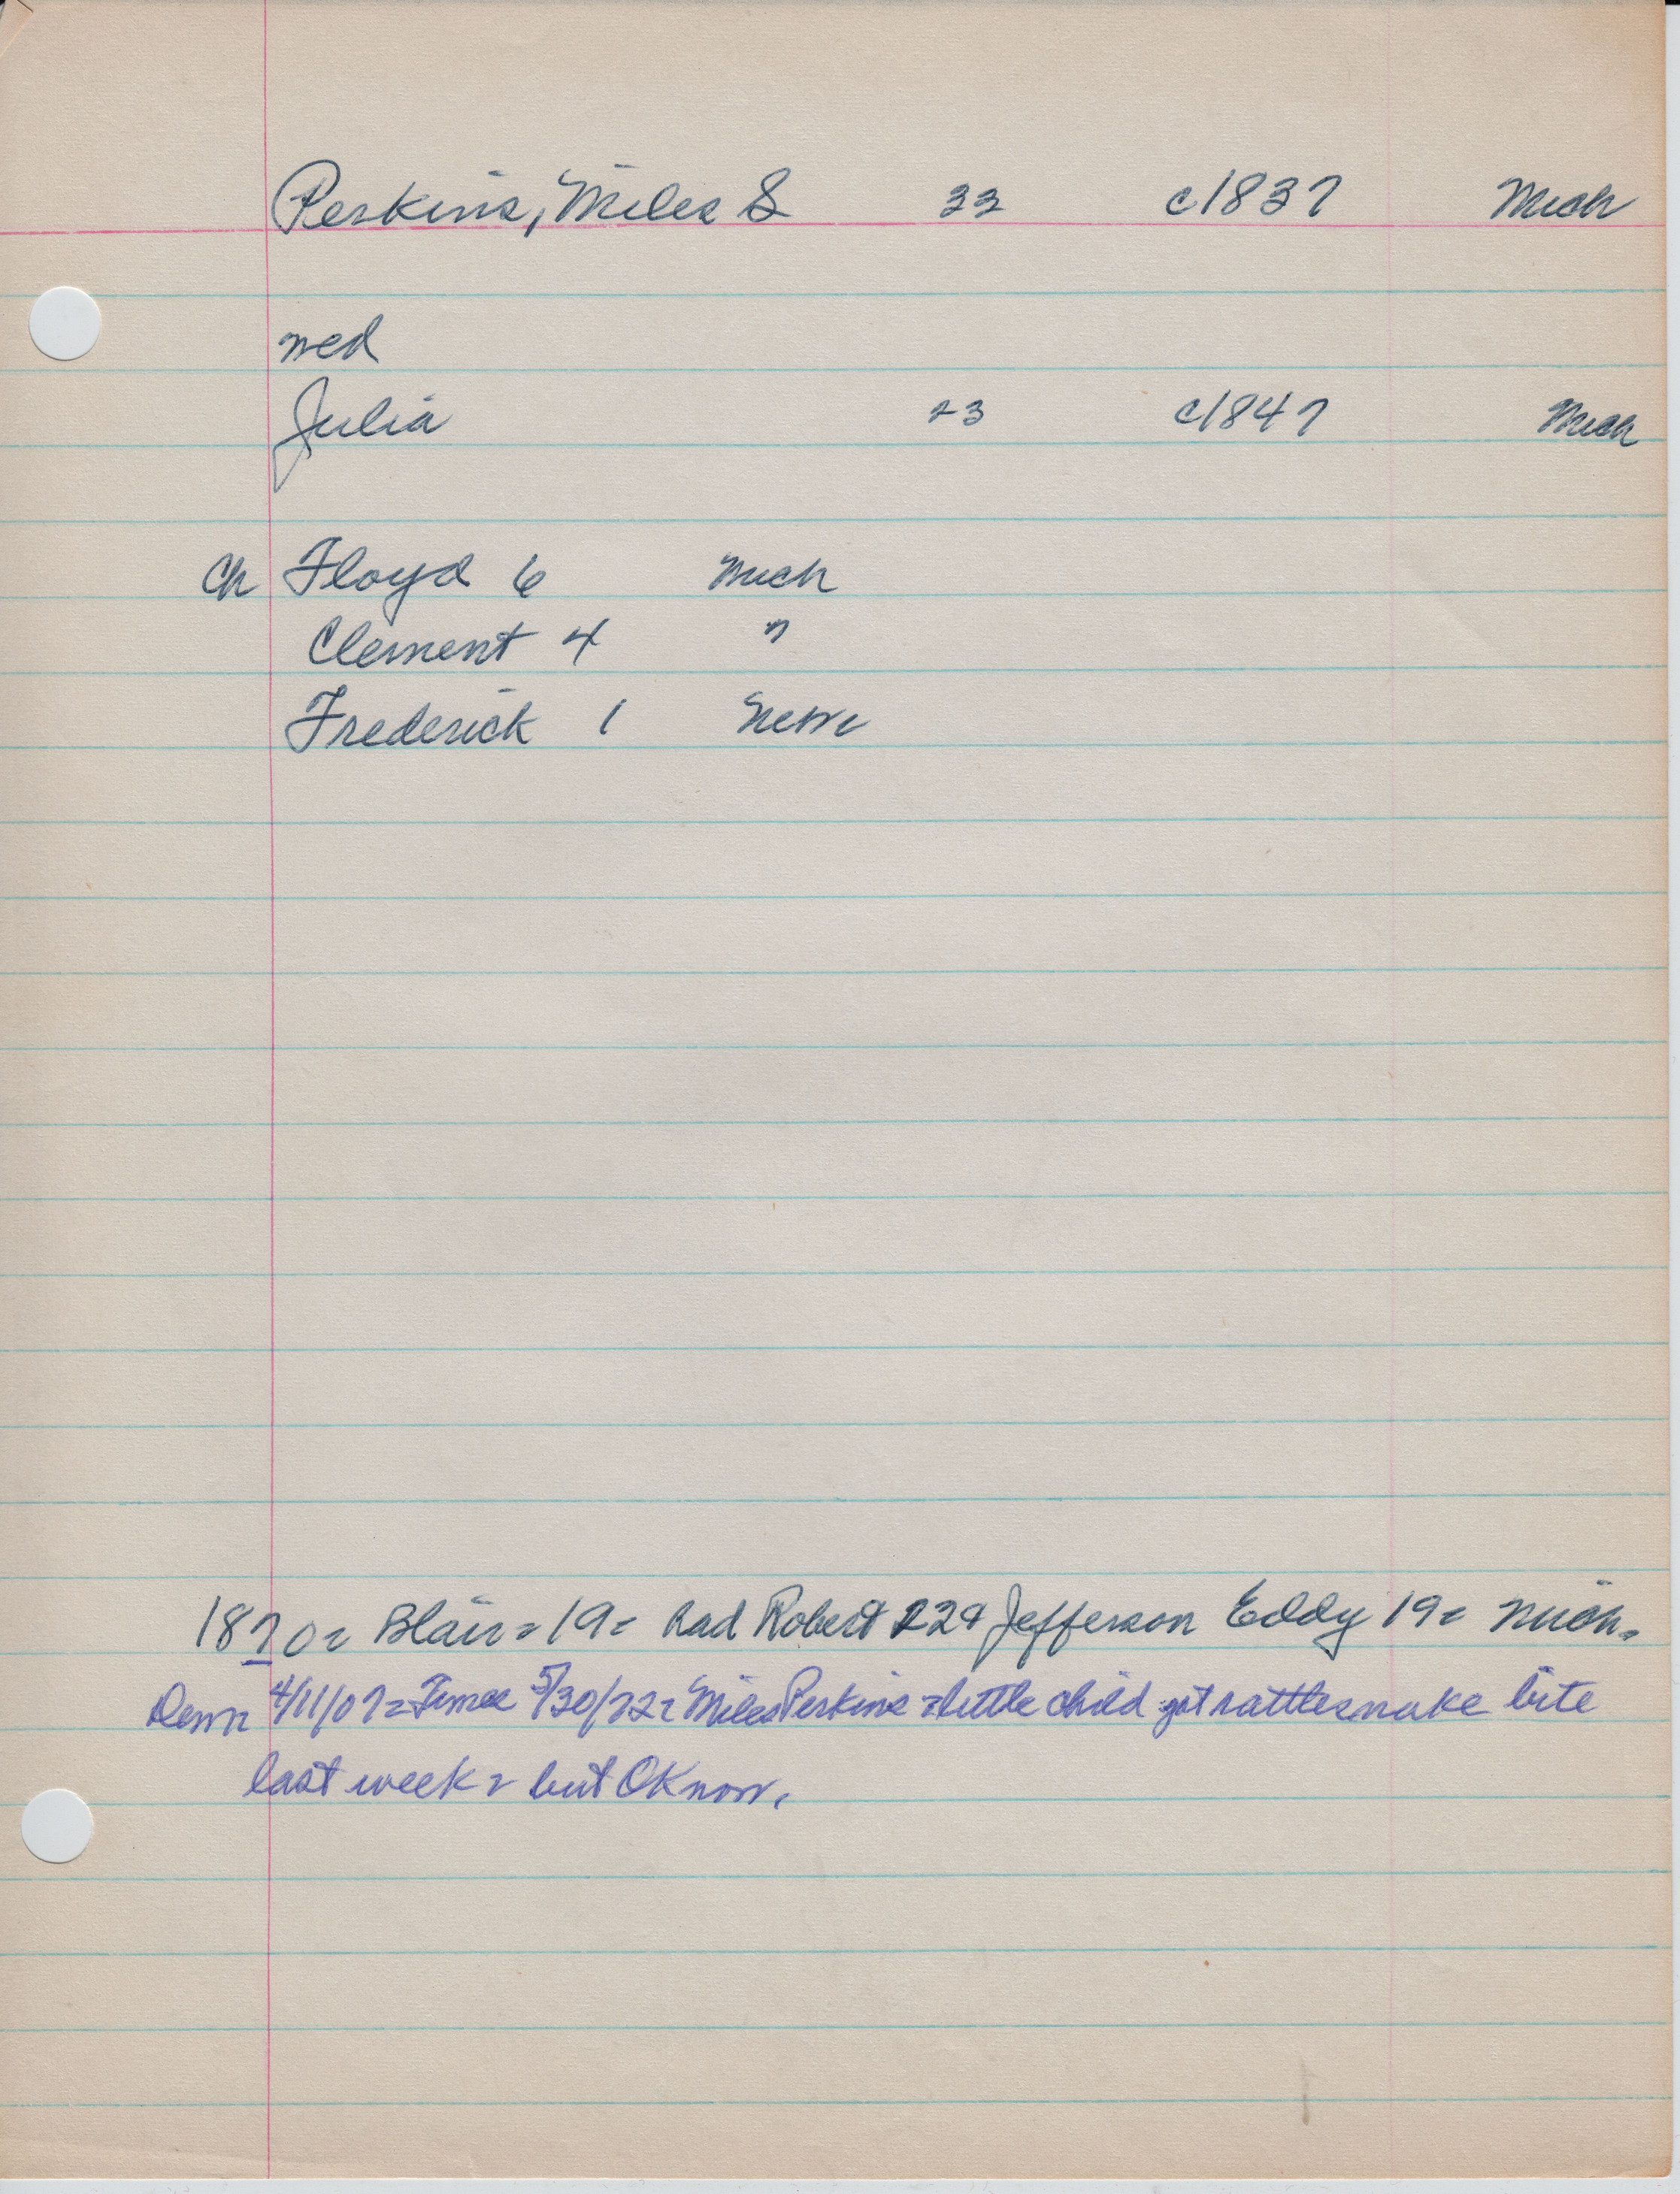 Perkins, Miles S 33 c1837 Mich
wed
Julia 23 c1847 Mich
Ch Floyd 6 Mich
Clement 4 "
Frederick 1 Nebr
1870= Blair= 19= had Robert 22 & Jefferson Eddy 19= Mich.
4/11/07= Times 5/30/72= Miles Perkins = little child got rattlesnake bite
last week= but OK now.